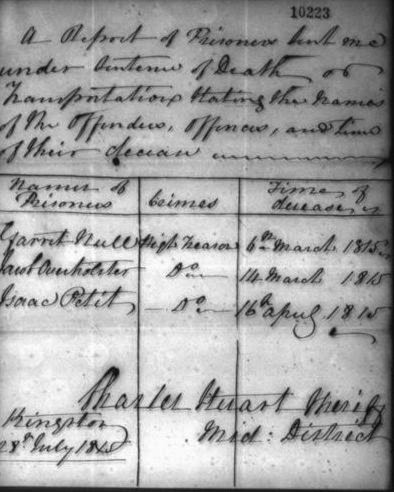 10223
A Report of Prisoners sent me
under Sentence of Death or
Transportation Stating the Names
of the Offenders, Offences, and time
of their decease
Names of Prisoners
Crimes
Time of decease
Garret Null High Treason 6th March 1815
Jacob Overholster Do 14 March 1815
Isaac Petit Do 16th April 1815
Charles Stuart Sheriff
Mid: District
Kingston
28th July 1815